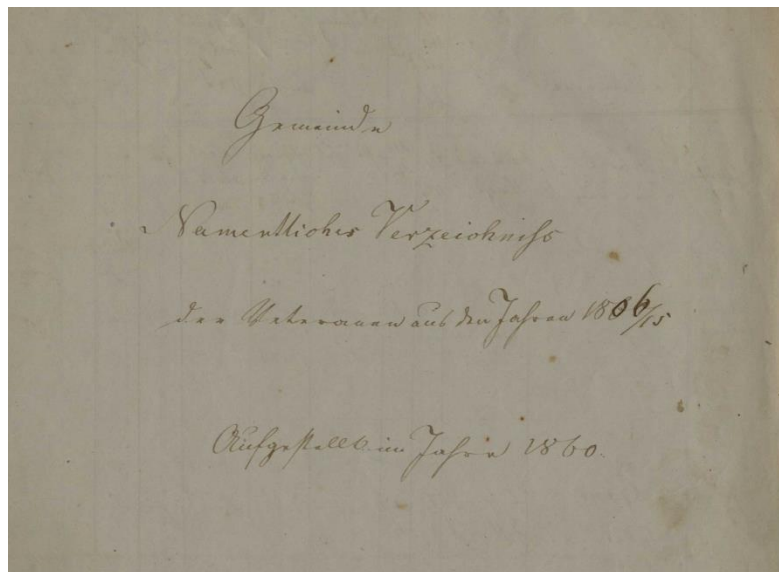 Gemeinde
Namentliches Verzeichniss
der Veteranen aus den Jahren 1806/15
Aufgestellt im Jahre 1860.